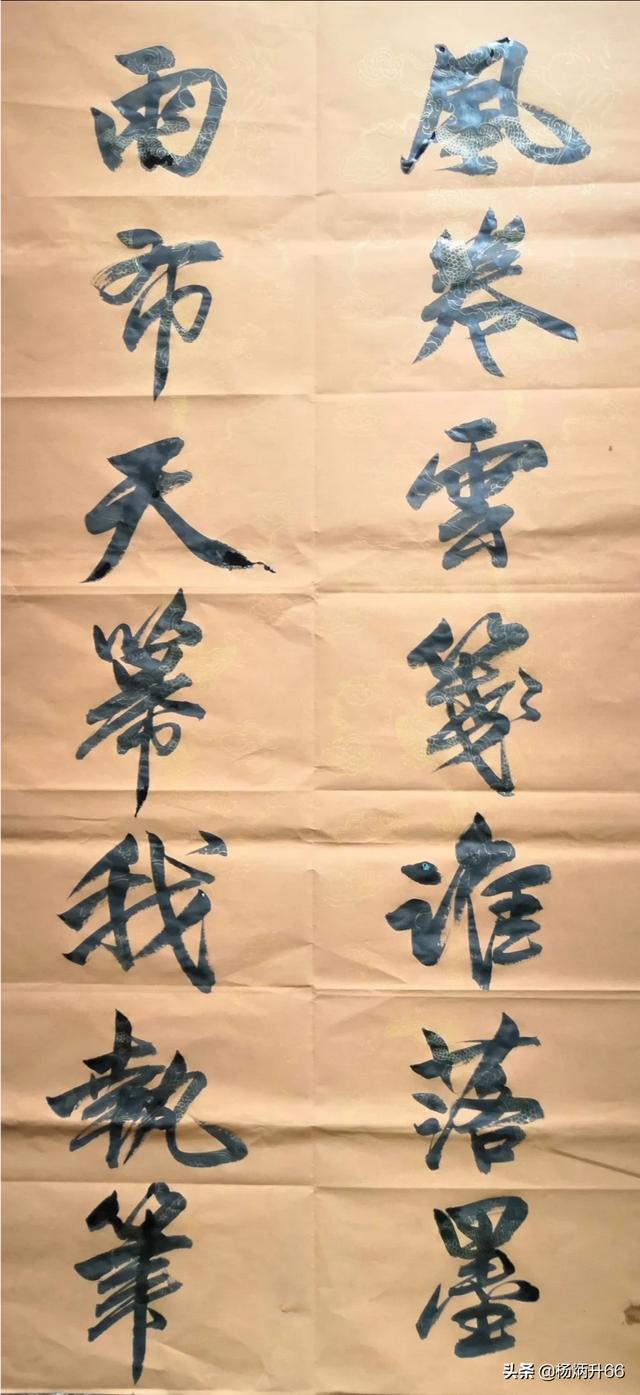 風卷雲箋誰落墨
雨布天幕我執筆
头条 @杨炳升66